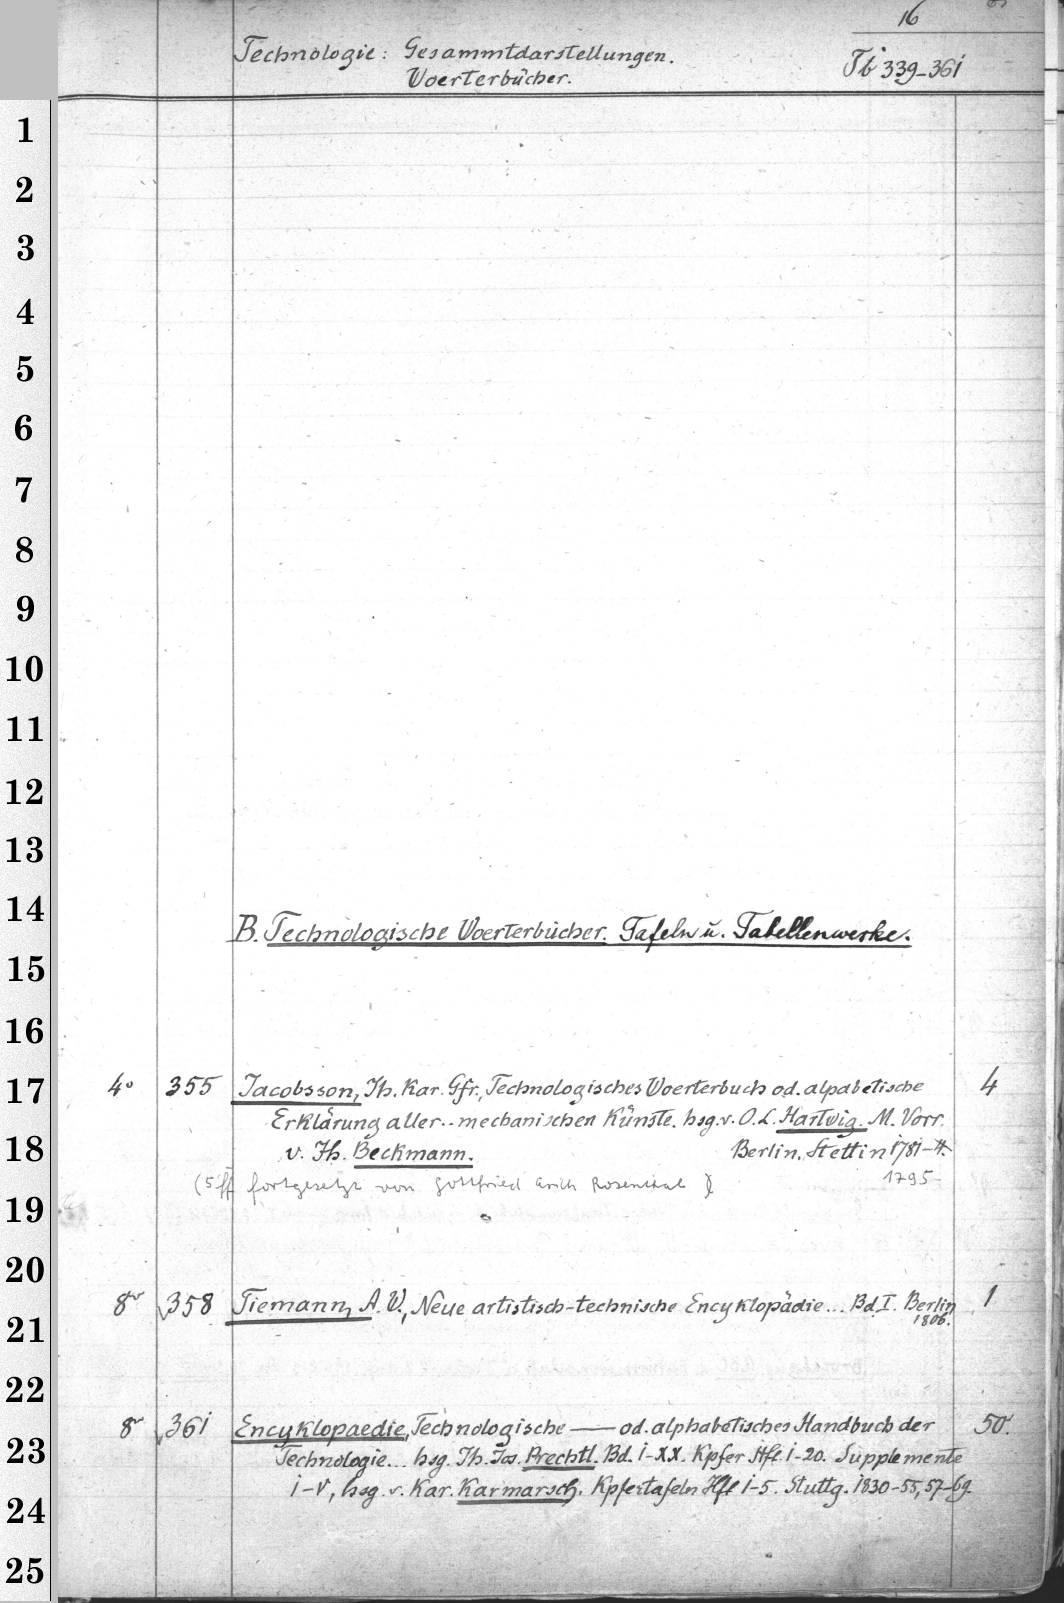 16
Technologie: Gesammtdarstellungen.
Woerterbücher.
Tb 339-361
1
2
3
4
5
6
7
8
9
10
11
12
13
14
B. Technologische Woerterbücher. Tafeln u. Tabellenwerke.
15
16
17
4° 355 Jacobsson, Jh. Kar. Gfr., Technologisches Woerterbuch od. alpabetische 4
Erklärung aller.. mechanischen Künste. hsg. v. O. L. Hartwig. M. Vorr.
18
v. Jh. Beckmann. Berlin, Stettin 1781-
(5ff fortgesetzt von Gottfried Erich Rosenthal) 1795-
19
20
8° 358 Tiemann, A. W., Neue artistisch-technische Encyklopädie... Bd. I. Berlin 1
1806.
21
22
8° 361 Encyklopaedie, Technologische — od. alphabetisches Handbuch der 50.
23
Technologie... hsg. Jh. Jos. Prechtl. Bd. 1-XX. Kpfer Hft. 1-20. Supplemente
1-V, hsg. v. Kar. Karmarsch. Kpfertafeln Hft 1-5. Stuttg. 1830-55, 57-69.
24
25